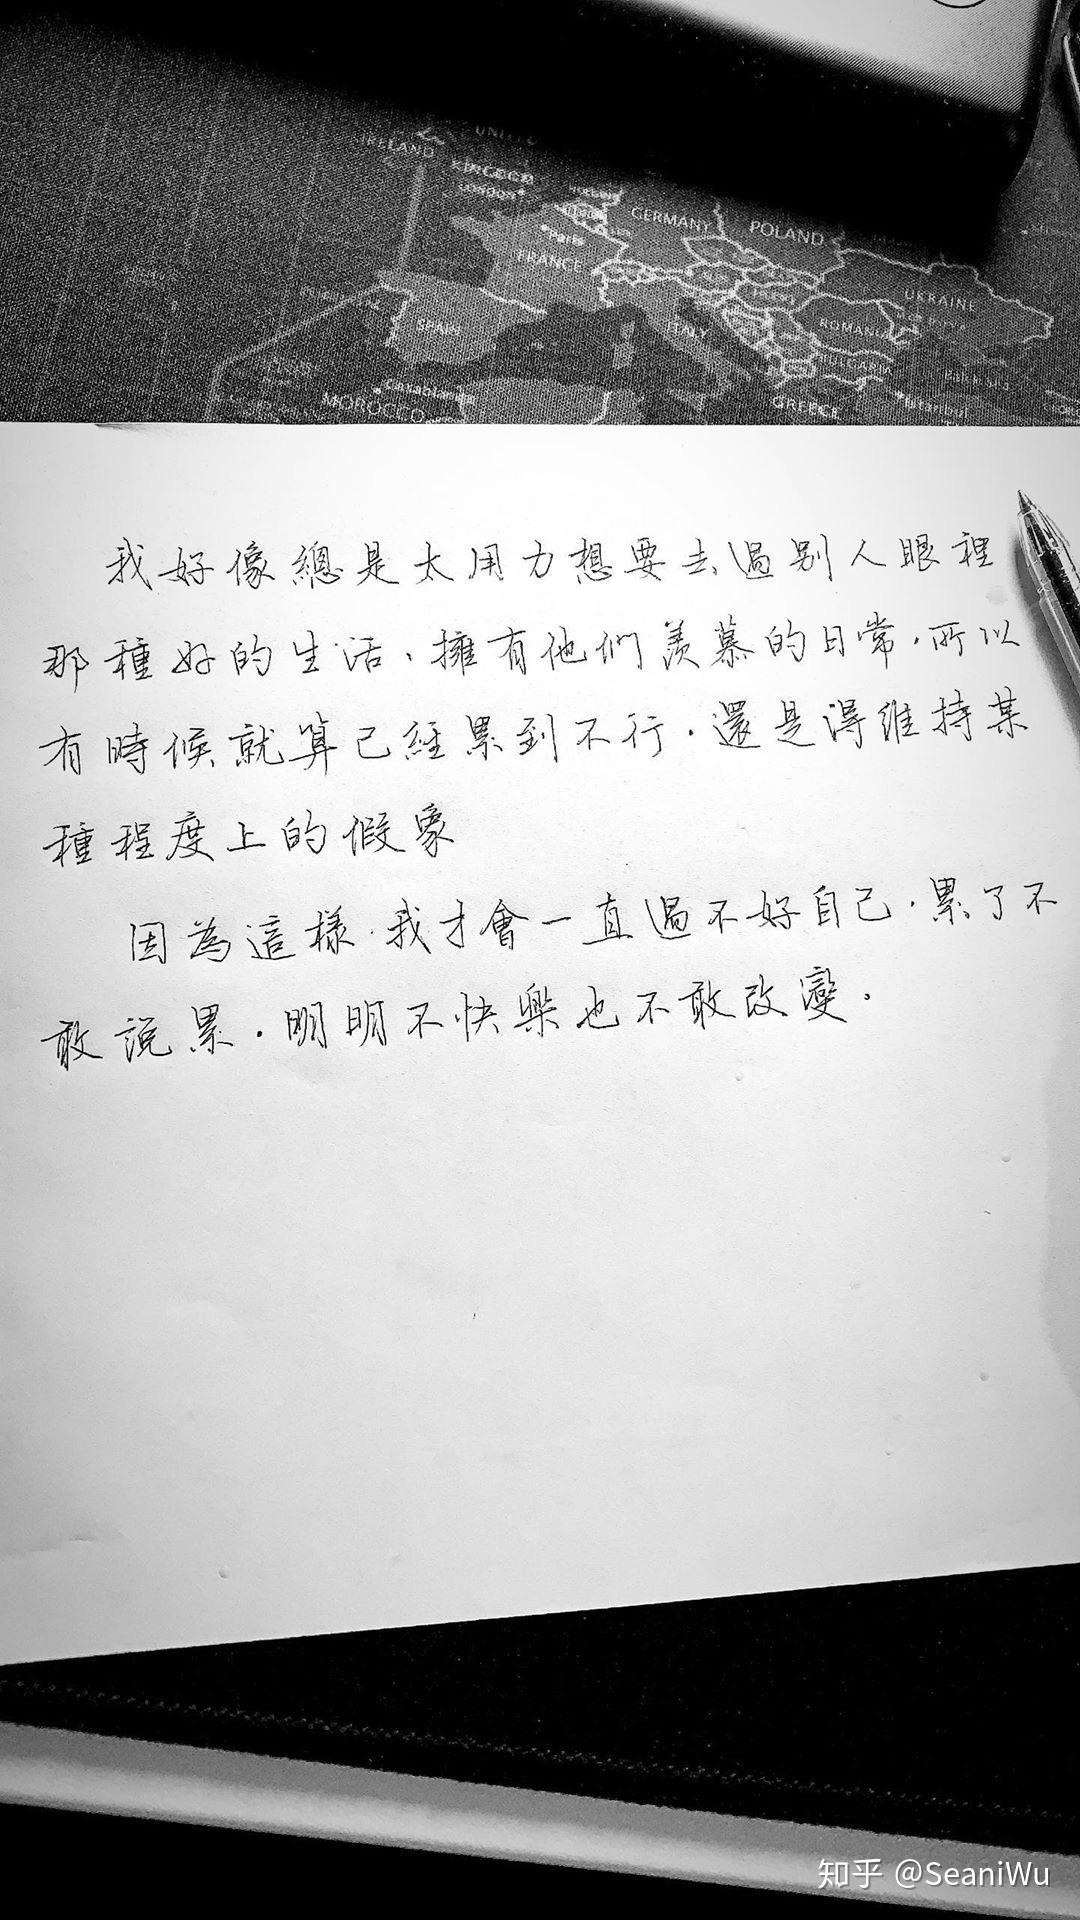 IRELAND
KINGDOM
LONDON
GERMANY
POLAND
Paris
FRANCE
UKRAINE
SPAIN
ITALY
ROMANIA
BULGARIA
Casablanca
MOROCCO
GREECE
Istanbul
我好像總是太用力想要去過別人眼裡
那種好的生活,擁有他們羨慕的日常,所以
有時候就算已經累到不行,還是得維持某
種程度上的假象
因為這樣,我才會一直過不好自己,累了不
敢說累,明明不快樂也不敢改變.
知乎 @SeaniWu